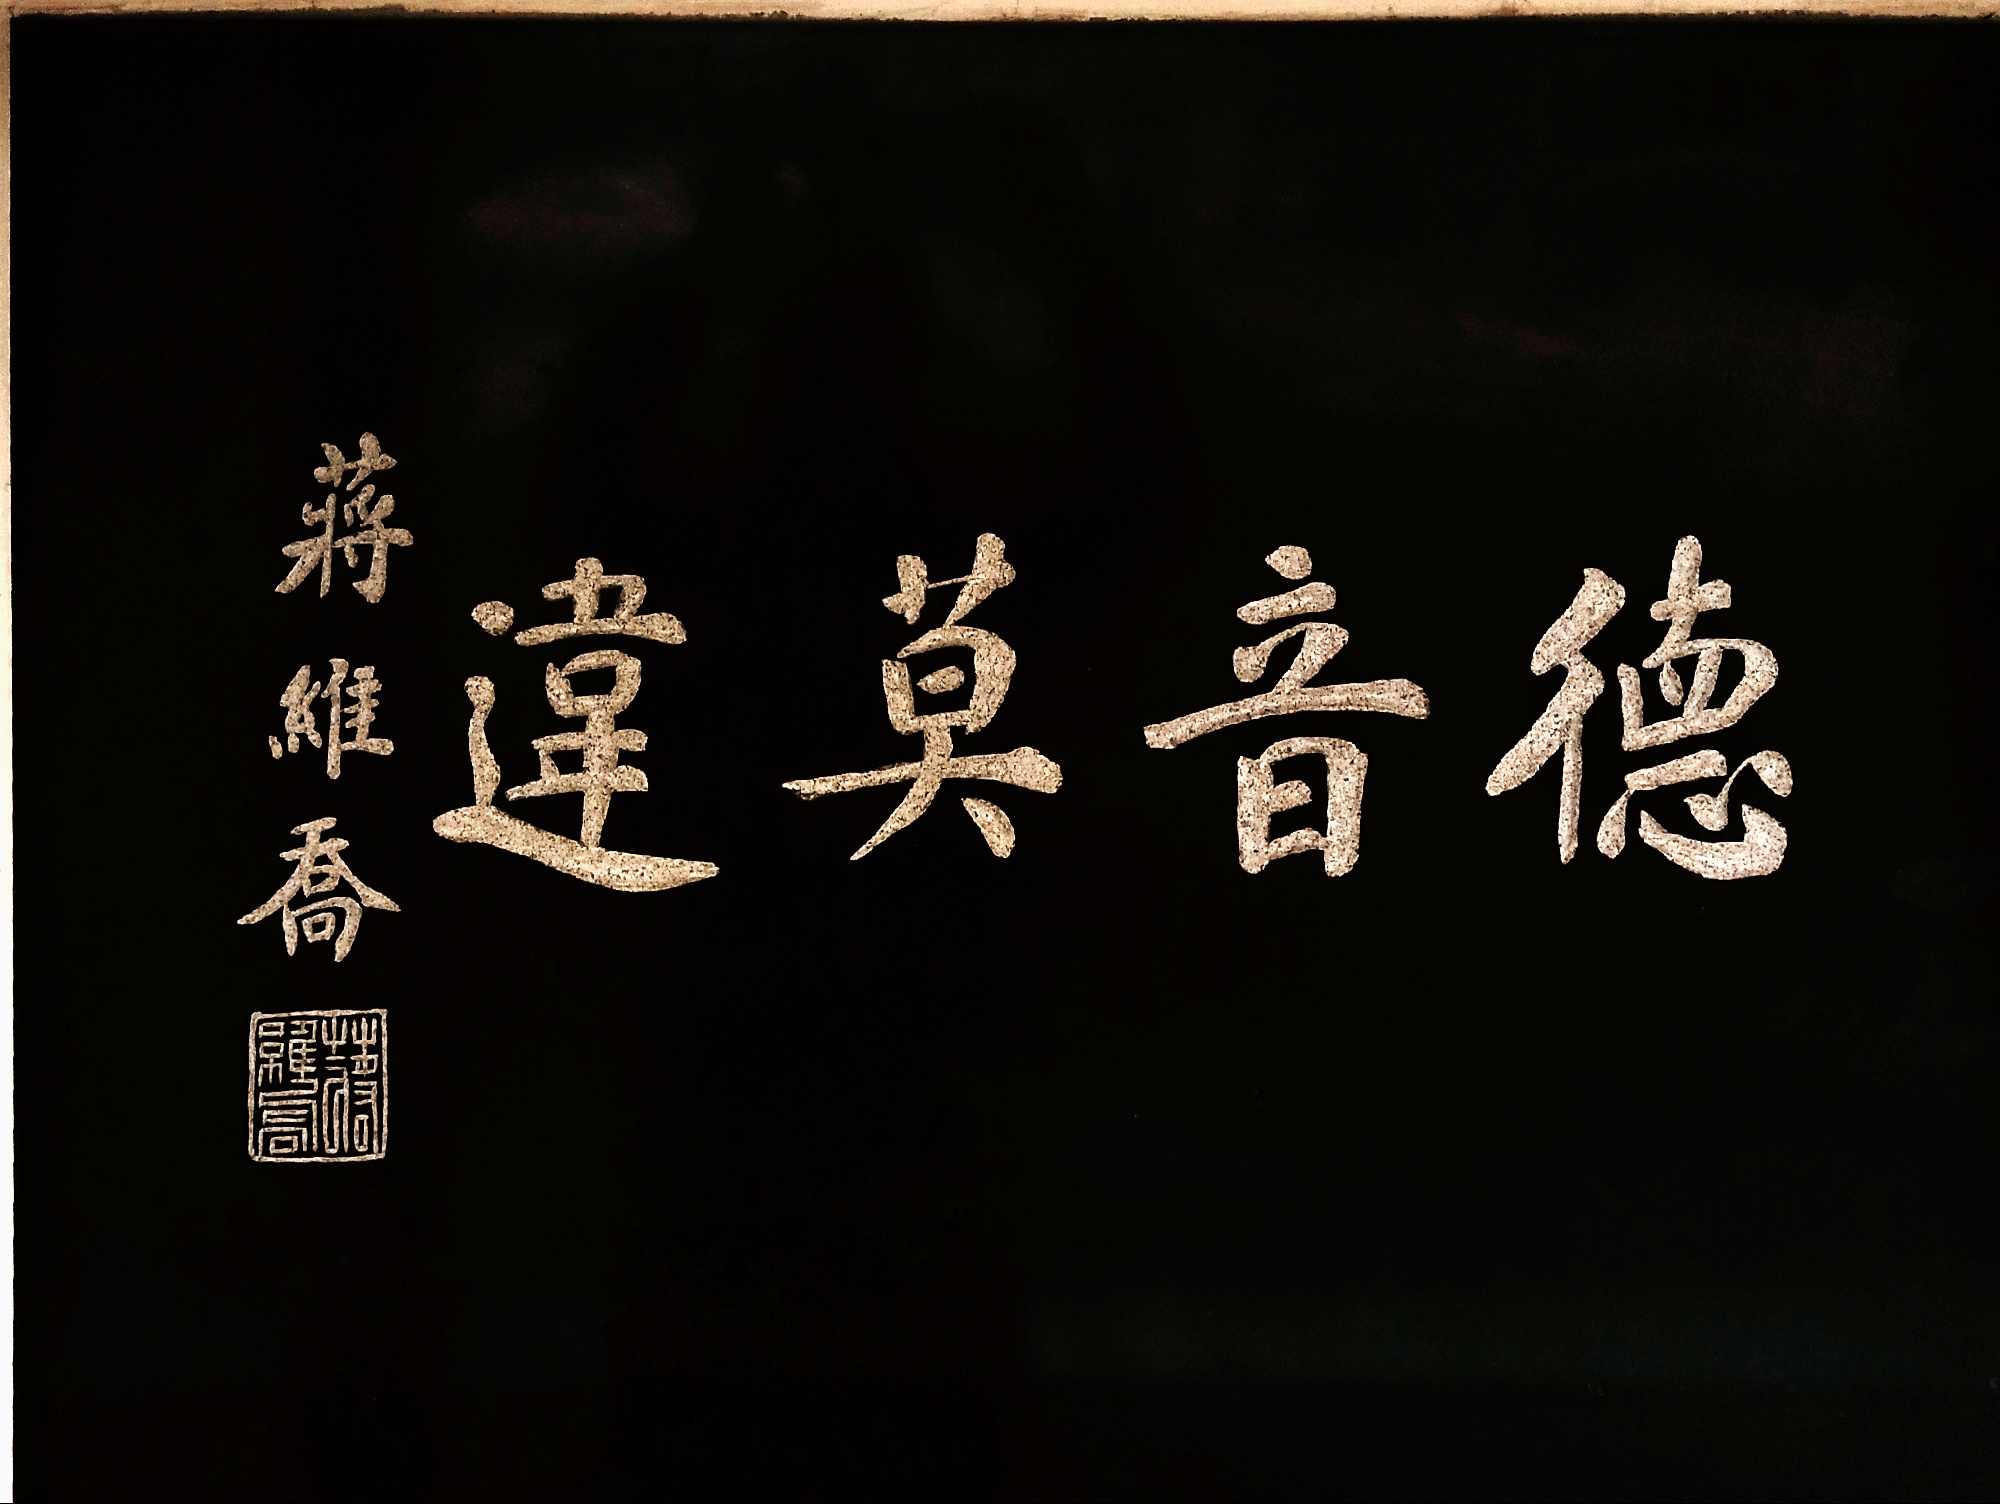 德音莫違
蔣維喬
蔣維喬